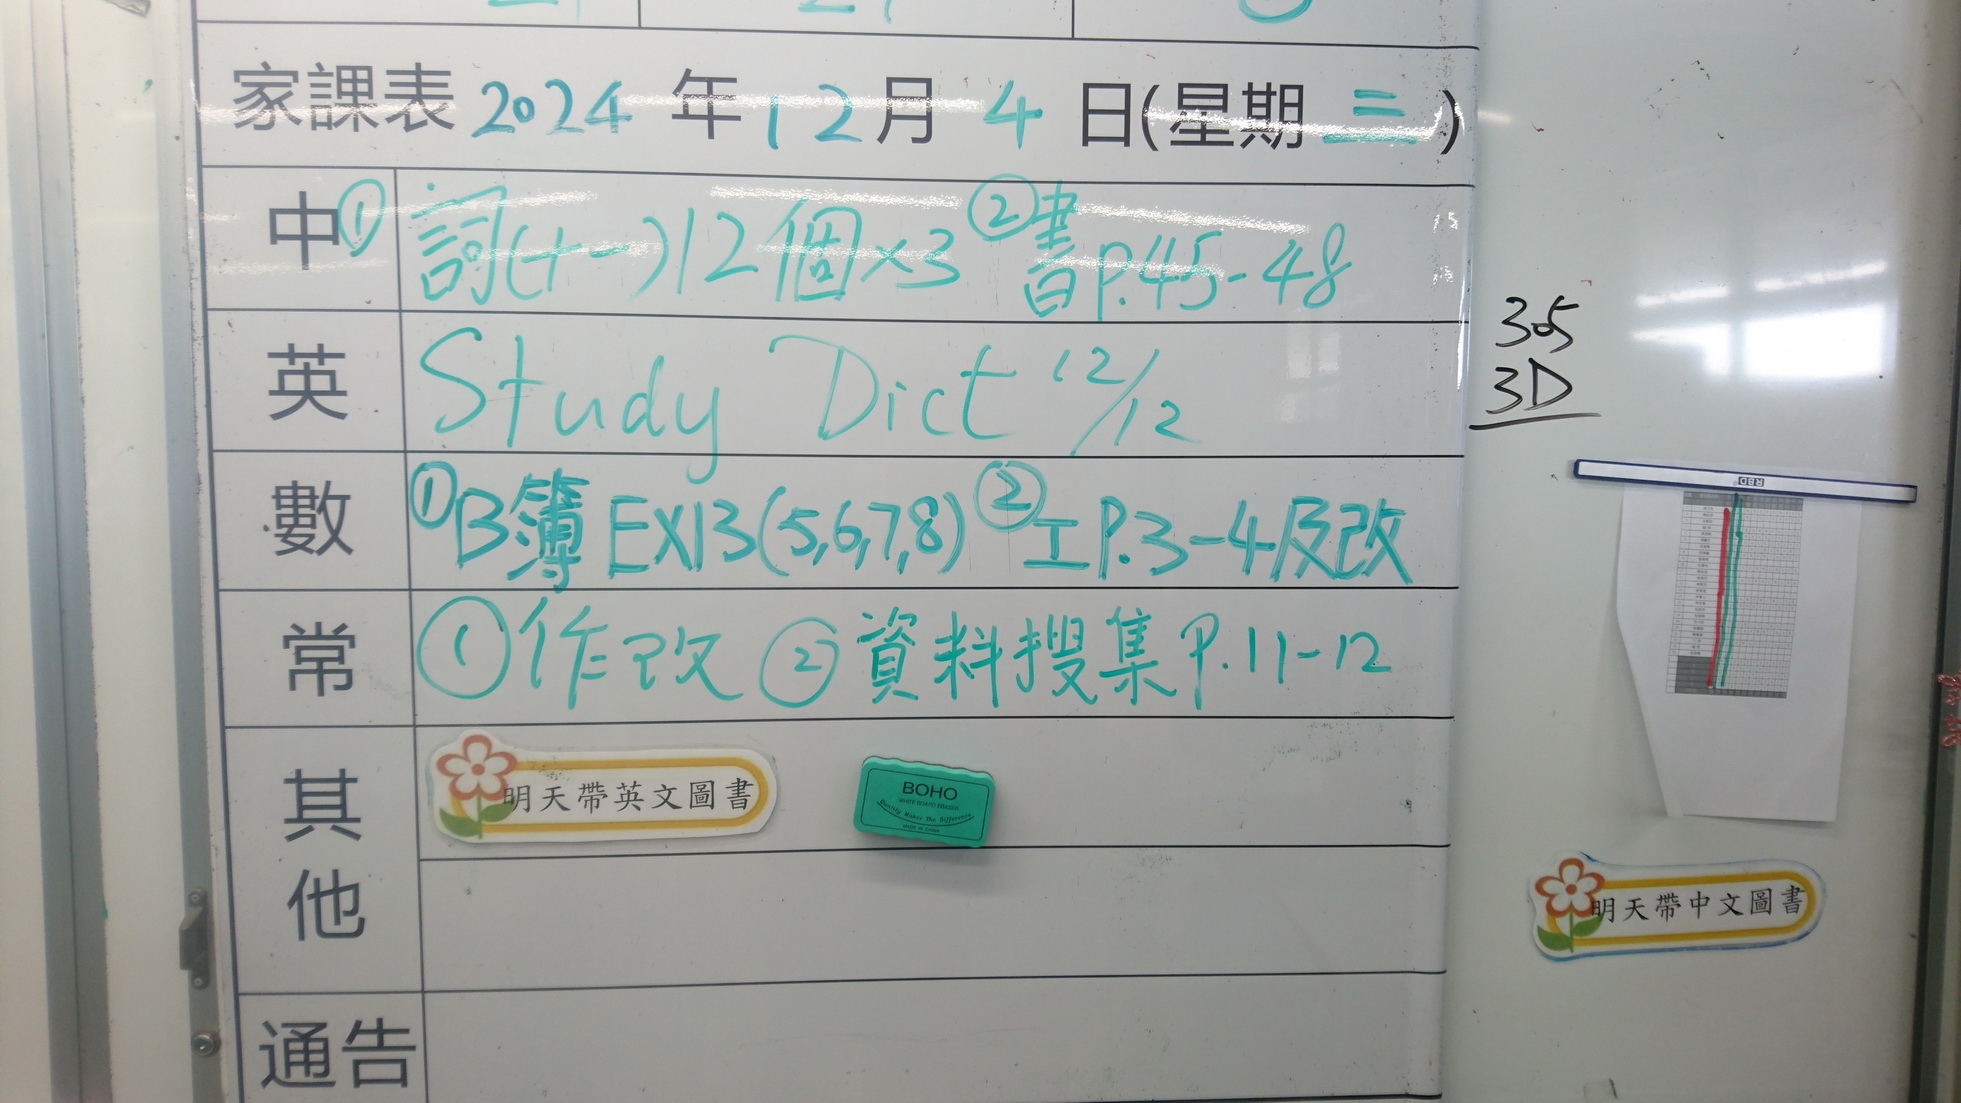 家課表 2024 年 12 月 4 日(星期 三)
中 ① 詞(十一)12個×3 ② 書P.45-48
英 Study Dict 12/12
數 ① B簿 EX13(5,6,7,8) ② 工P.3-4及改
常 ① 作改 ② 資料搜集P.11-12
其他
明天帶英文圖書
BOHO
WHITE BOARD ERASER
Quality Makes The Difference
MADE IN CHINA
通告
305
3D
明天帶中文圖書